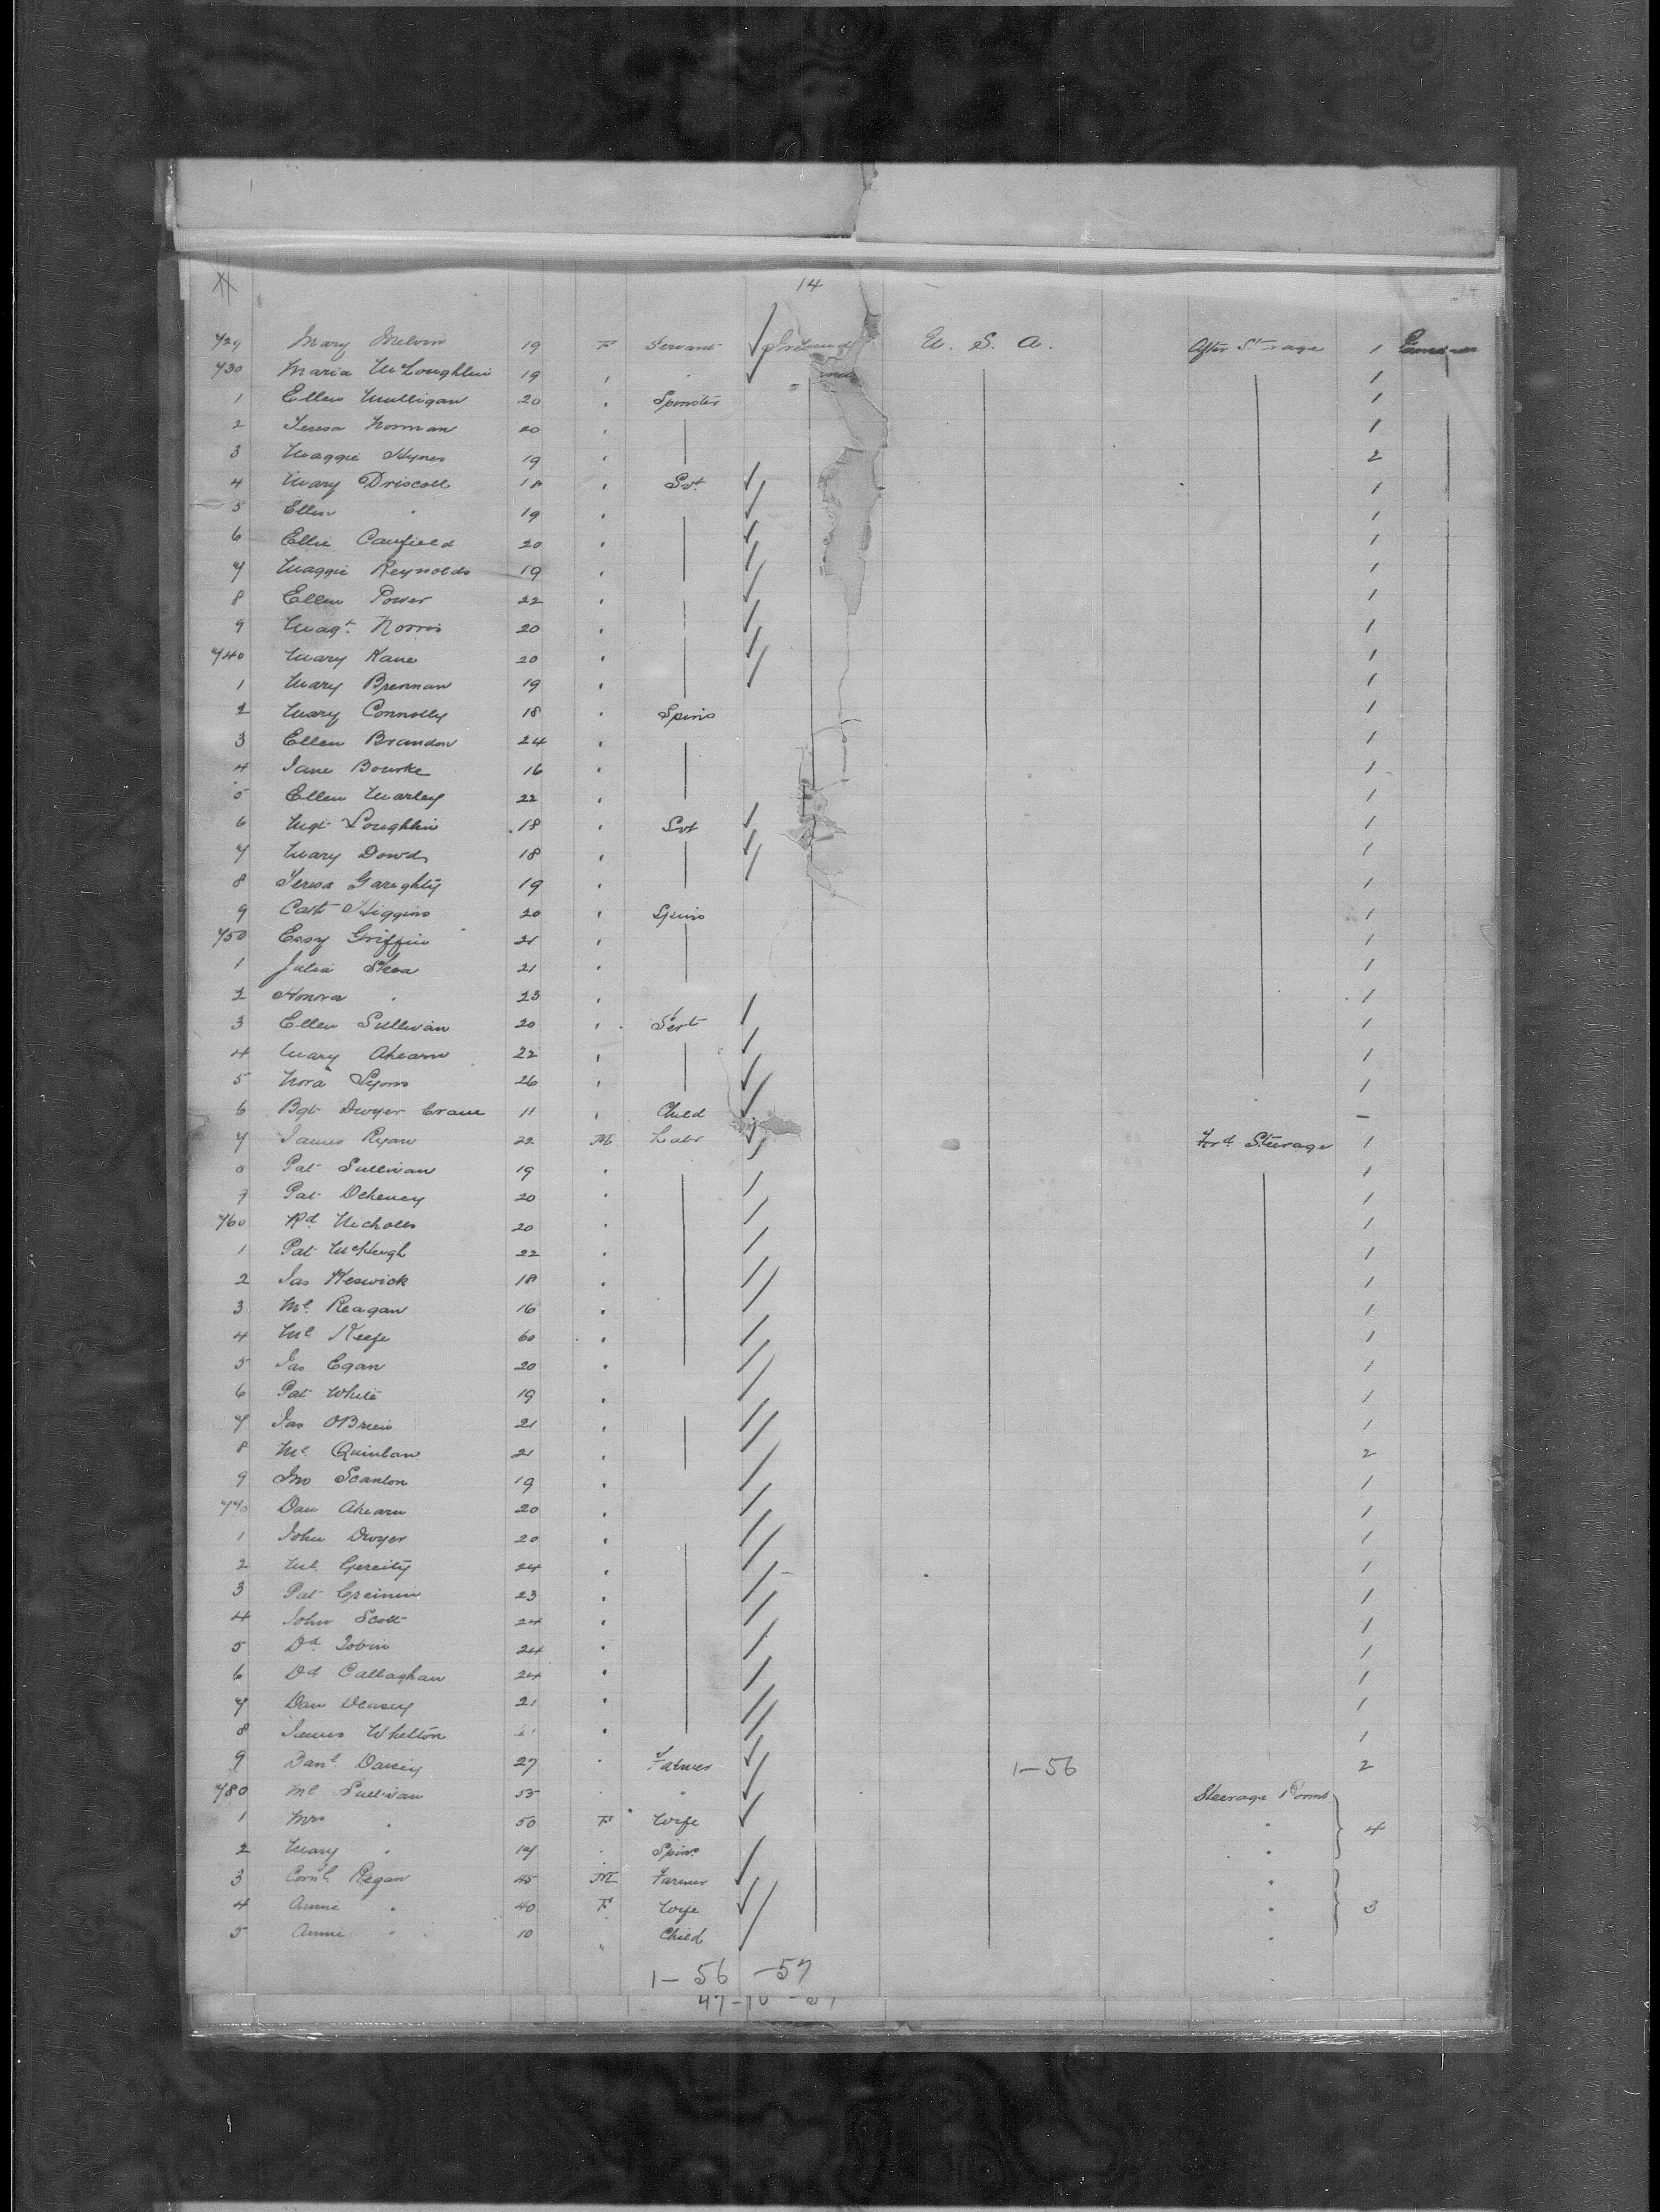 14
729 Mary Melvin 19 F Servant Ireland U. S. A. After St rage 1
730 Maria McLoughlin 19 " " 1
1 Ellen Mulligan 20 " Spinster 1
2 Teresa Norman 20 " 1
3 Maggie Hynes 19 " 2
4 Mary Driscoll 18 " Svt 1
5 Ellen " 19 " 1
6 Ellie Caufield 20 " 1
7 Maggie Reynolds 19 " 1
8 Ellen Power 22 " 1
9 Magt. Norris 20 " 1
740 Mary Kane 20 " 1
1 Mary Brennan 19 " 1
2 Mary Connolly 18 " Spins 1
3 Ellen Brandon 24 " 1
4 Jane Bourke 16 " 1
5 Ellen Marley 22 " 1
6 Mgt Loughlin 18 " Svt 1
7 Mary Dowd 18 " 1
8 Teresa Gareghty 19 " 1
9 Cath Higgins 20 " Spins 1
750 Essy Griffin 21 " 1
1 Julia Shea 21 " 1
2 Honora " 23 " 1
3 Ellen Sullivan 20 " Servt 1
4 Mary Ahearn 22 " 1
5 Nora Lyons 26 " 1
6 Bgt Dwyer Crane 11 " Child —
7 James Ryan 22 M Labr Frd Steerage 1
8 Pat Sullivan 19 " 1
9 Pat Deheney 20 " 1
760 Rd Nicholls 20 " 1
1 Pat McHugh 22 " 1
2 Jas Keswick 18 " 1
3 Ml. Reagan 16 " 1
4 Ml. Keefe 60 " 1
5 Jas Egan 20 " 1
6 Pat White 19 " 1
7 Jas OBrien 21 " 1
8 Ml. Quinlan 21 " 2
9 Jno Scanlon 19 " 1
770 Dan Ahearn 20 " 1
1 John Dwyer 20 " 1
2 Ml. Gereity 24 " 1
3 Pat 23 " 1
4 John Scott 24 " 1
5 Dd. Tobin 24 " 1
6 Dd Callaghan 24 " 1
7 Dan 21 " 1
8 James Whelton " 1
9 Danl. 27 " Farmer 1-56 2
780 Ml Sullivan 55 " " Steerage Rooms
1 Mrs " 50 F Wife " 4
2 Mary " 17 " Spins "
3 Cornl. Regan 45 M Farmer "
4 Annie " 40 F Wife " 3
5 Annie " 10 " Child "
1- 56 -57